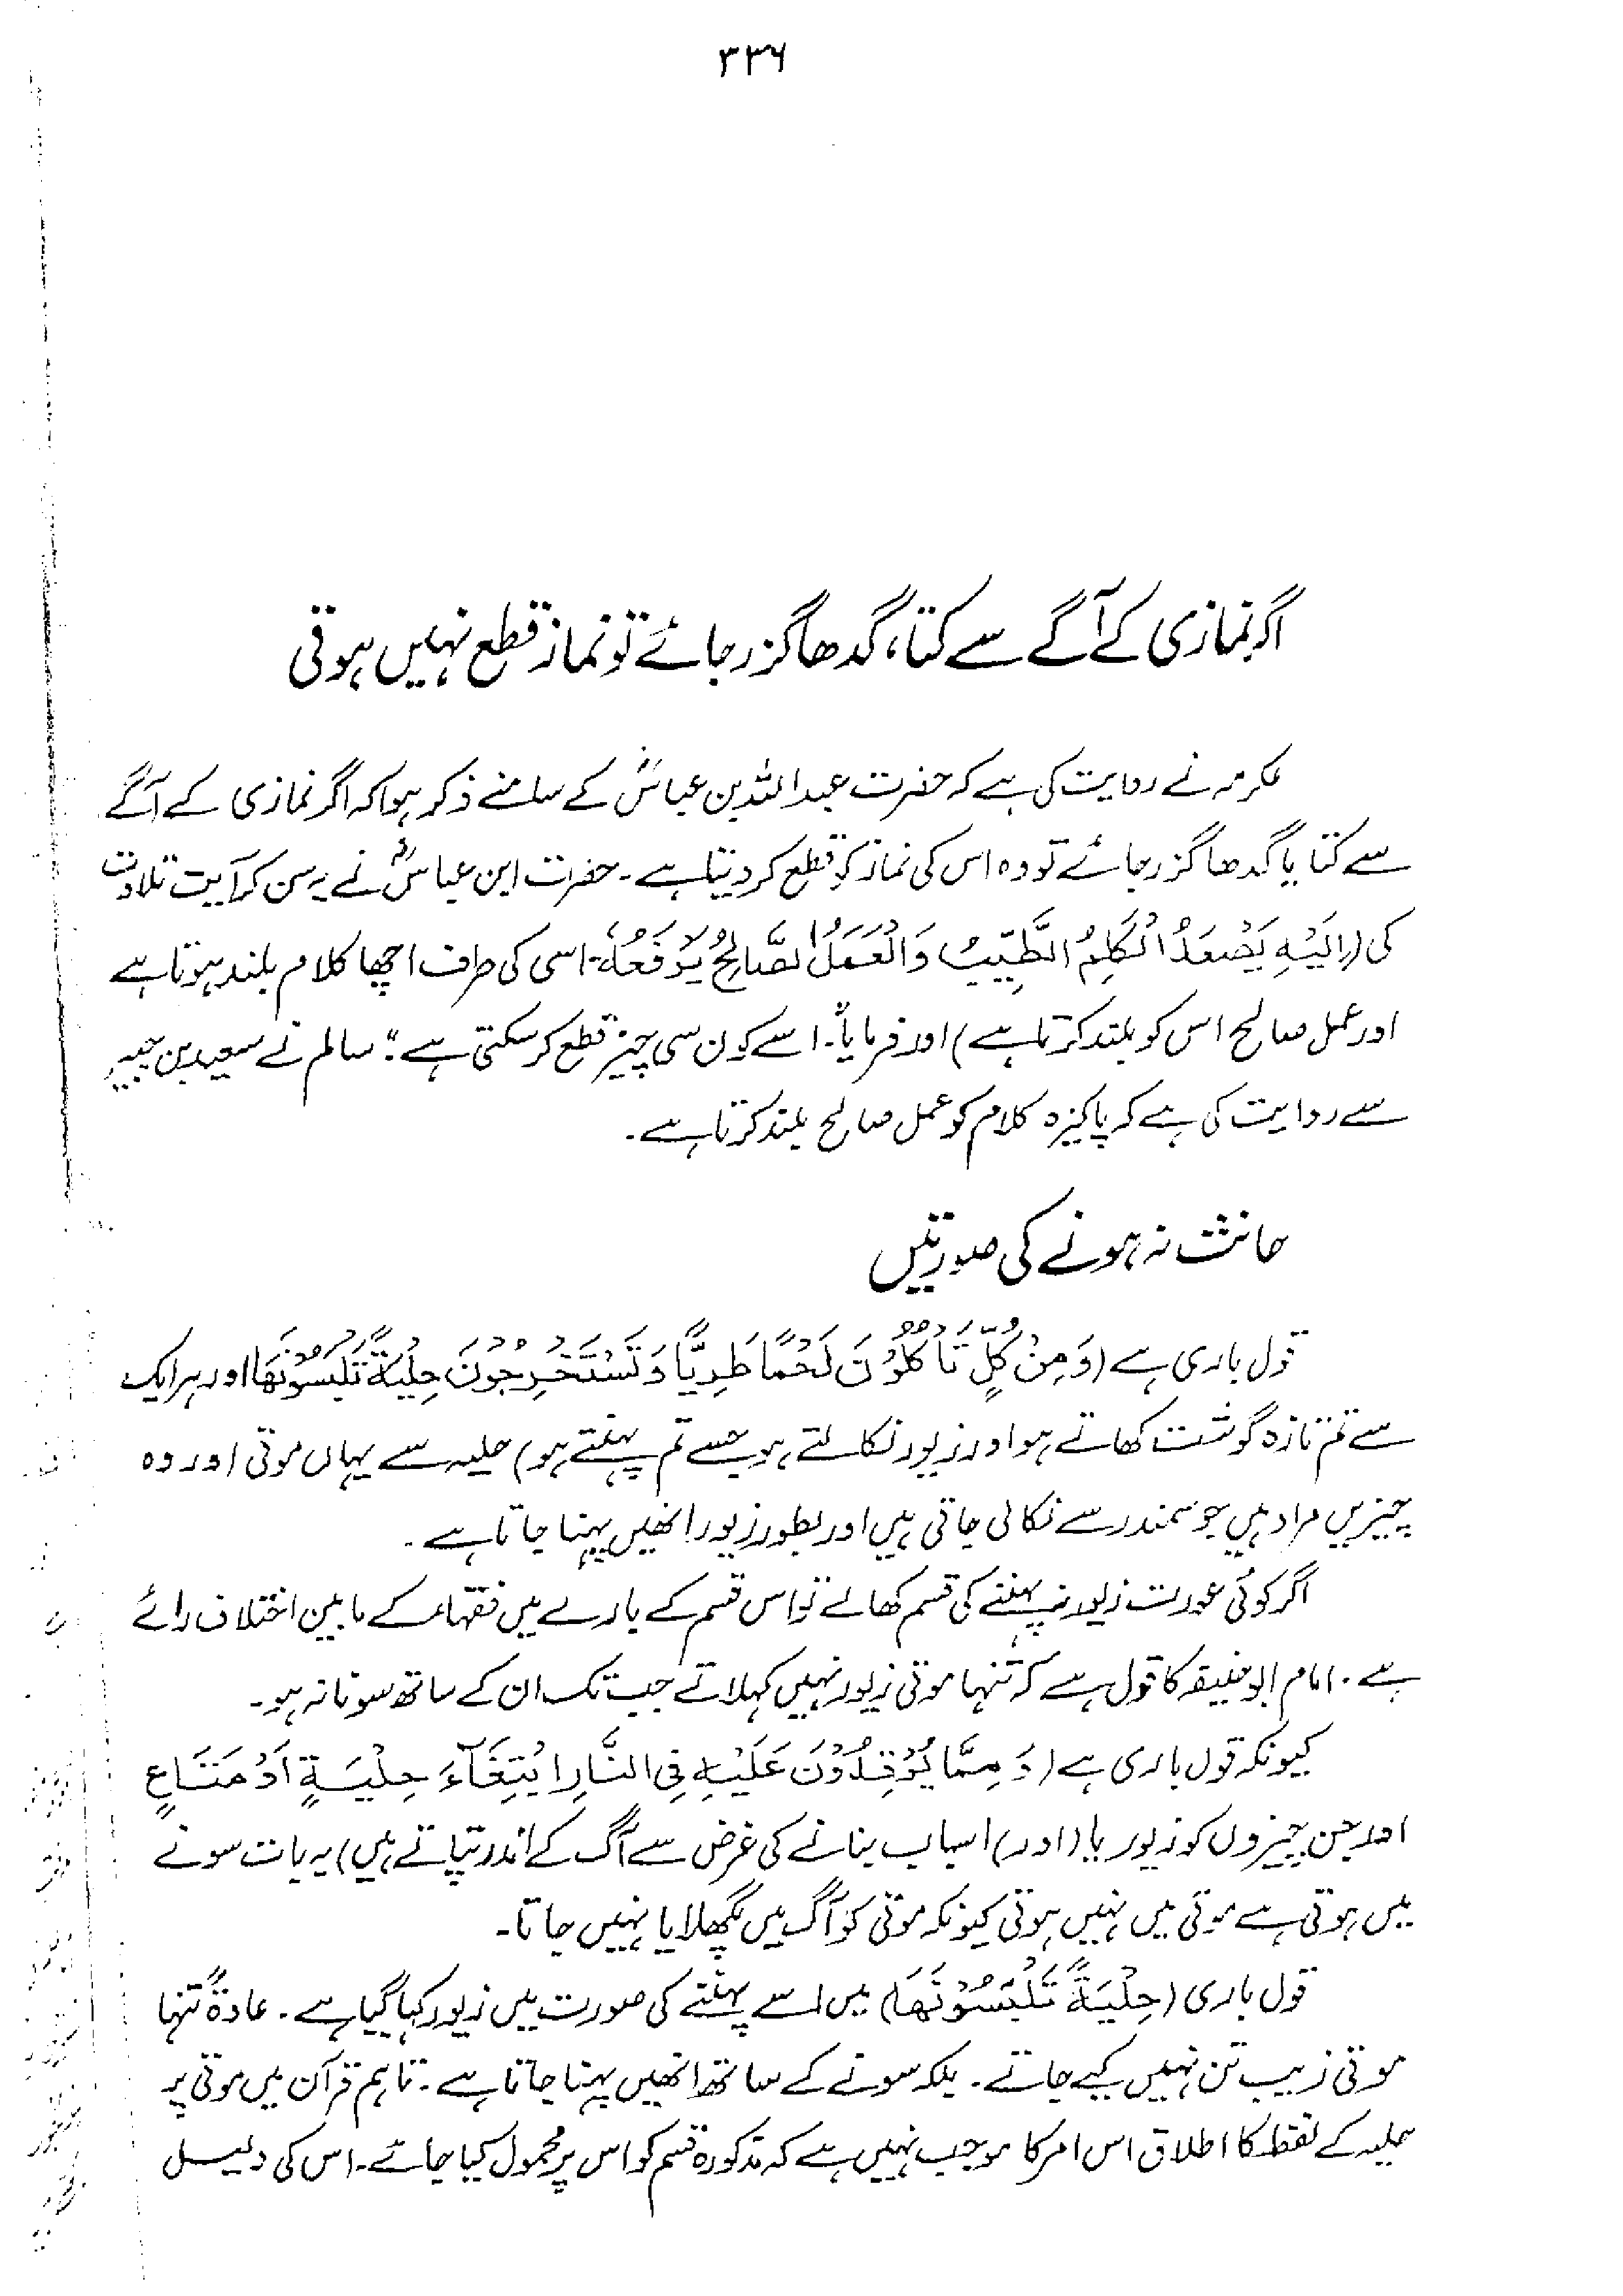 ۳۳۶
اگر نمازی کے آگے سے کتا، گدھا گزر جائے تو نماز قطع نہیں ہوتی
عکرمہ نے روایت کی ہے کہ حضرت عبداللہ بن عباسؓ کے سامنے ذکر ہوا کہ اگر نمازی کے آگے
سے کتا یا گدھا گزر جائے تو وہ اس کی نماز کو قطع کر دیتا ہے۔ حضرت ابن عباسؓ نے یہ سن کر آیت تلاوت
کی (اِلَیْہِ یَصْعَدُ الْکَلِمُ الطَّیِّبُ وَالْعَمَلُ الصَّالِحُ یَرْفَعُہٗ۔ اسی کی طرف اچھا کلام بلند ہوتا ہے
اور عمل صالح اس کو بلند کرتا ہے) اور فرمایا "۔ اسے کون سی چیز قطع کر سکتی ہے؛" سالم نے سعید بن جبیر
سے روایت کی ہے کہ پاکیزہ کلام کو عمل صالح بلند کرتا ہے۔
حانث نہ ہونے کی صورتیں
قول باری ہے (وَمِنْ کُلٍّ تَاْکُلُوْنَ لَحْمًا طَرِیًّا وَّتَسْتَخْرِجُوْنَ حِلْیَۃً تَلْبَسُوْنَھَا اور ہر ایک
سے تم تازہ گوشت کھاتے ہو اور زیور نکالتے ہو جسے تم پہنتے ہو) حلیہ سے یہاں موتی اور وہ
چیزیں مراد ہیں جو سمندر سے نکالی جاتی ہیں اور بطور زیور انھیں پہنا جاتا ہے۔
اگر کوئی عورت زیور نہ پہننے کی قسم کھالے تو اس قسم کے بارے میں فقہاء کے مابین اختلاف رائے
ہے۔ امام ابو حنیفہ کا قول ہے کہ تنہا موتی زیور نہیں کہلاتے جب تک ان کے ساتھ سونا نہ ہو۔
کیونکہ قول باری ہے (وَمِمَّا یُوْقِدُوْنَ عَلَیْہِ فِی النَّارِ ابْتِغَآءَ حِلْیَۃٍ اَوْ مَتَاعٍ
اور جن چیزوں کو زیور یا (اور) اسباب بنانے کی غرض سے آگ کے اندر تپاتے ہیں) یہ بات سونے
میں ہوتی ہے موتی میں نہیں ہوتی کیونکہ موتی کو آگ میں پگھلایا نہیں جاتا۔
قول باری (حِلْیَۃً تَلْبَسُوْنَھَا) میں اسے پہننے کی صورت میں زیور کہا گیا ہے۔ عادۃً تنہا
موتی زیب تن نہیں کیے جاتے۔ بلکہ سونے کے ساتھ انھیں پہنا جاتا ہے۔ تاہم قرآن میں موتی پر
حلیہ کے لفظ کا اطلاق اس امر کا موجب نہیں ہے کہ مذکورہ قسم کو اس پر محمول کیا جائے۔ اس کی دلیل